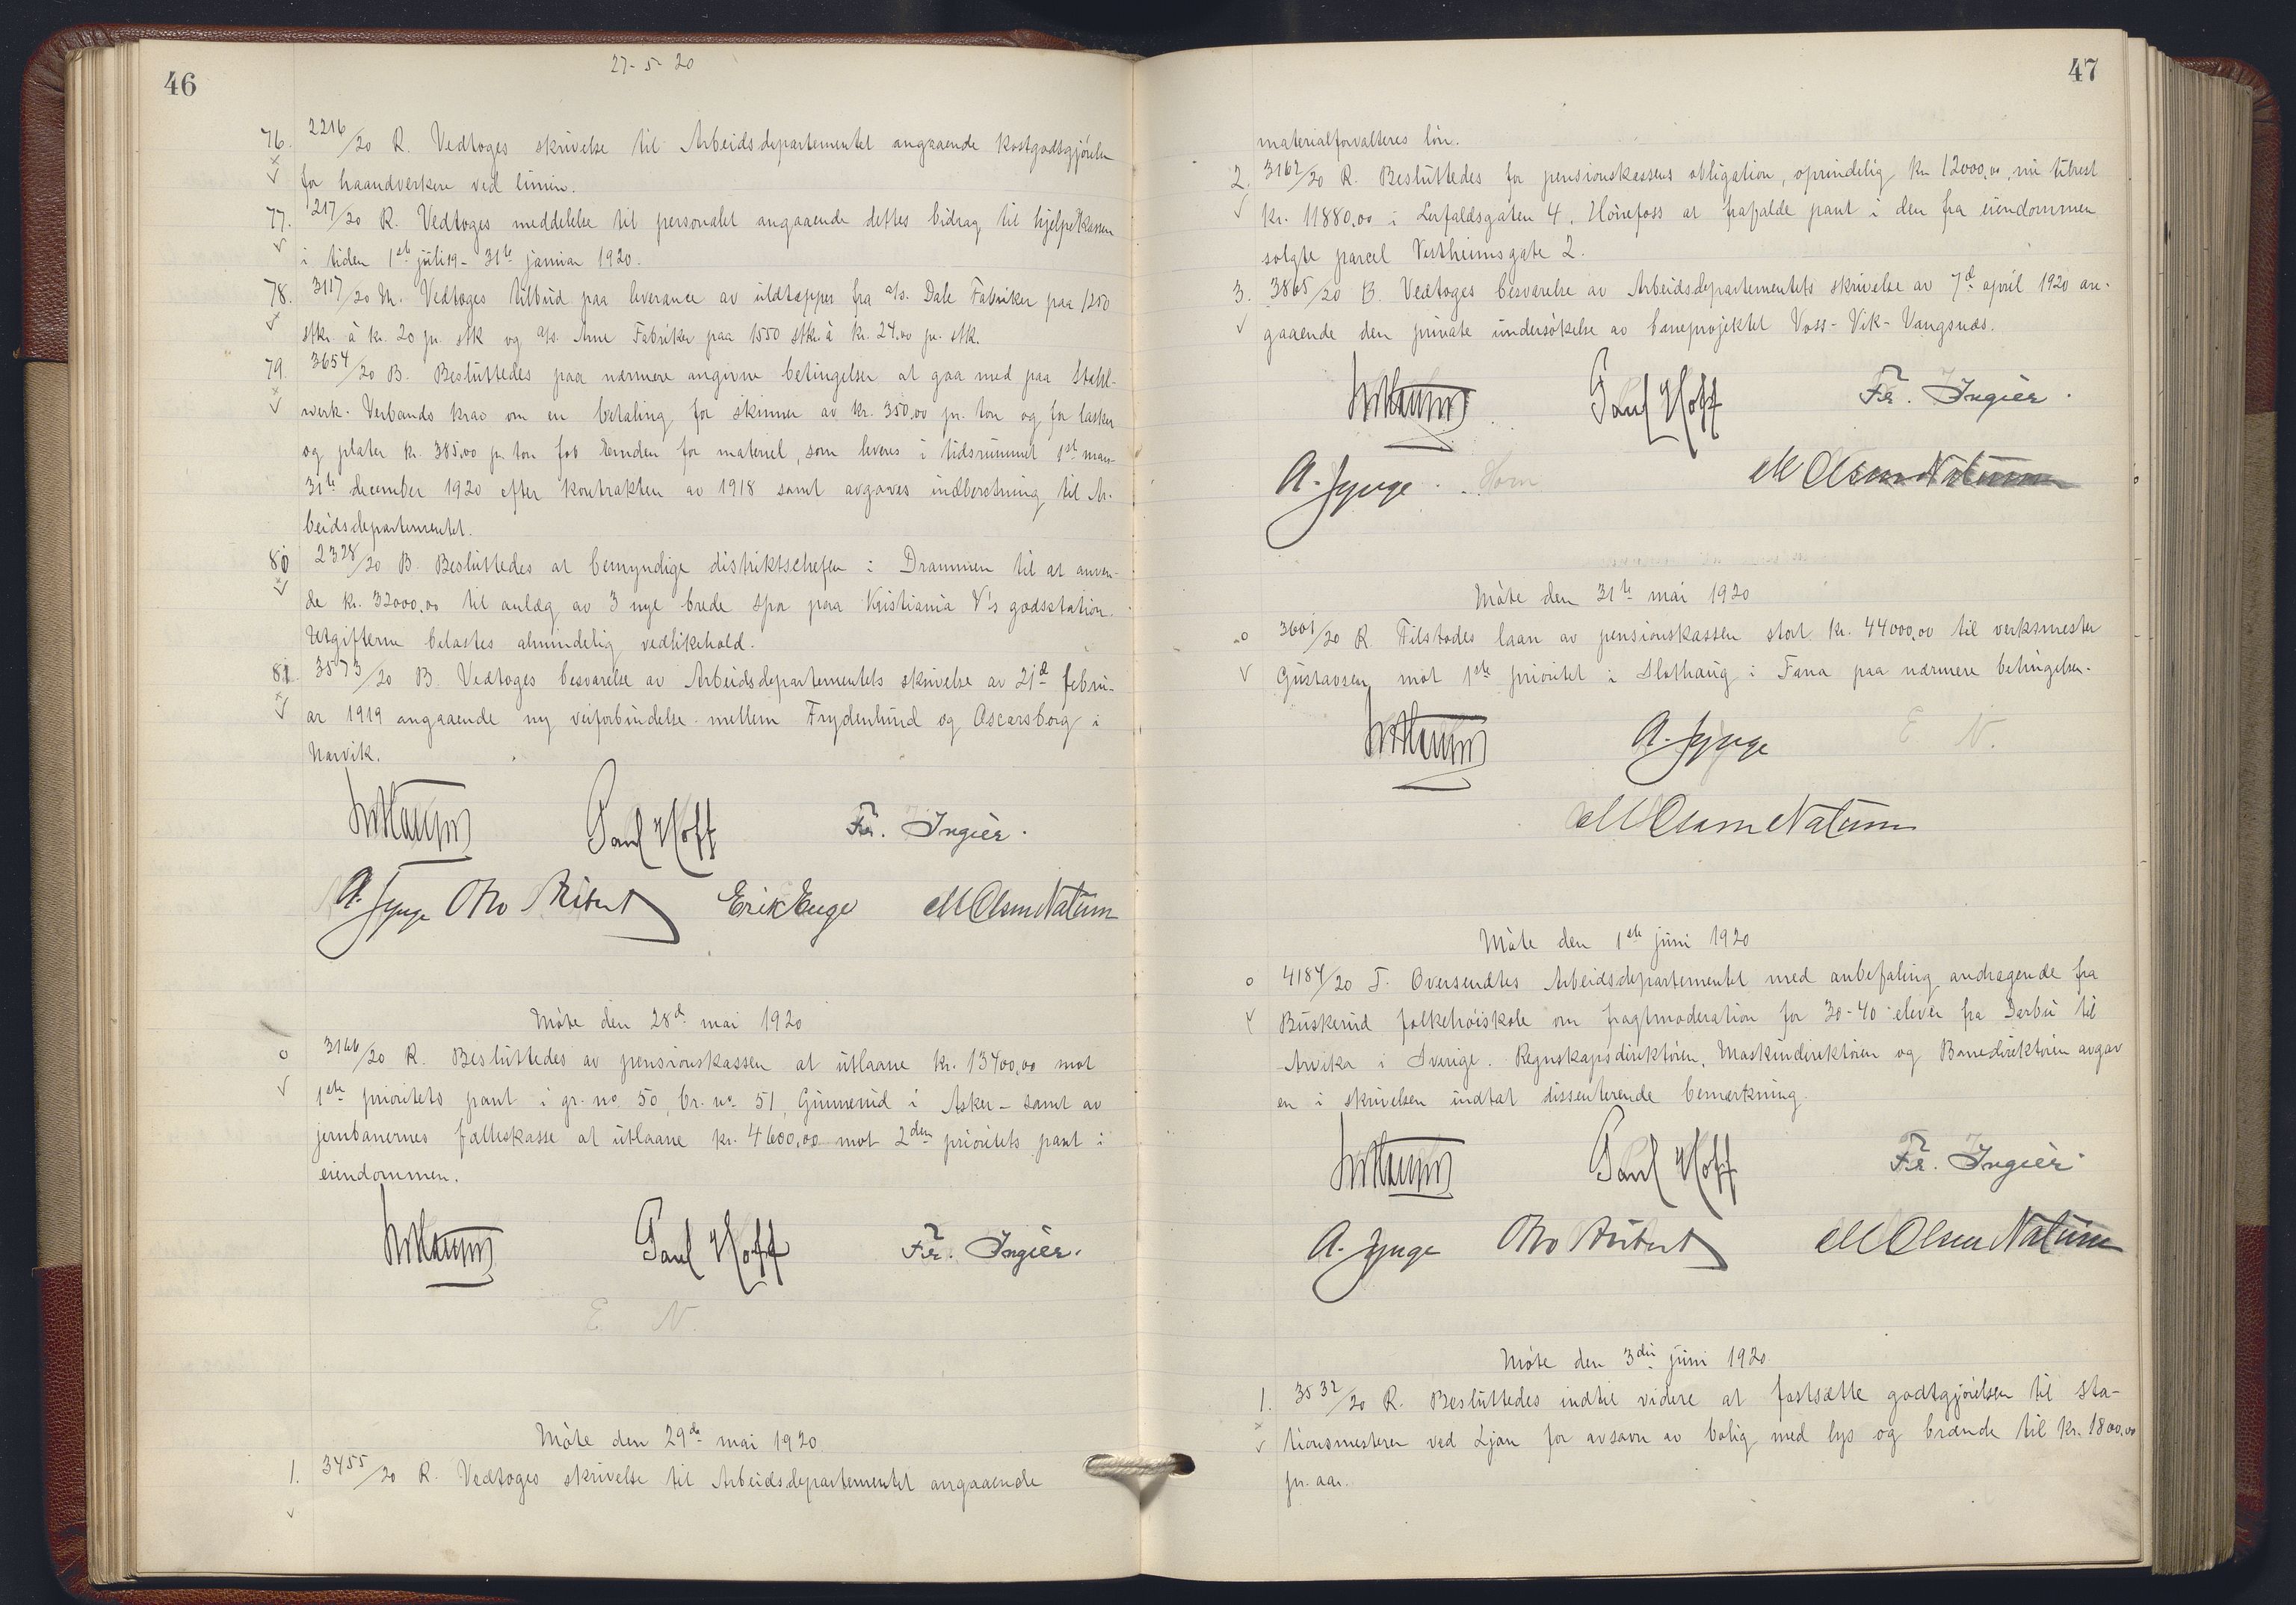 46
27-5-20
76. 2216/20 R. Vedtoges skrivelse til Arbeidsdepartementet angaaende kostgodtgjörelse
for haandverkere ved linien.
77. 217/20 R. Vedtoges meddelelse til personalet angaaende dettes bidrag til hjelpekassen
i tiden 1ste juli 19 - 31te januar 1920.
78. 3117/20 M. Vedtoges tilbud paa leverance av uldtepper fra a/s. Dale Fabriker paa 1250
stk. à kr. 20 pr. stk og a/s. Arne Fabriker paa 1550 stk. à kr. 24.00 pr. stk.
79. 3654/20 B. Besluttedes paa nærmere angivne betingelser at gaa med paa Stahl-
werk-Verbands krav om en betaling for skinner av kr. 350,00 pr. ton og for lasker
og plater kr. 385,00 pr. ton fob Emden for materiel, som leveres i tidsrummet 1st mars-
31te december 1920 efter kontrakten av 1918 samt avgaves indberetning til Ar-
beidsdepartementet.
80 2328/20 B. Besluttedes at bemyndige distriktschefen i Drammen til at anven-
de kr. 32000,00 til anlæg av 3 nye brede spor paa Kristiania V's godsstation.
Utgifterne belastes almindelig vedlikehold.
81. 3573/20 B. Vedtoges besvarelse av Arbeidsdepartementets skrivelse av 21d febru-
ar 1919 angaaende ny veiforbindelse mellem Frydenlund og Oscarsborg i
Narvik.
Paul Hoff Fr. Ingier.
Erik Enge M Olsen Natum
Möte den 28d. mai 1920
o 3166/20 R. Besluttedes av pensionskassen at utlaane kr. 13400,00 mot
1ste prioritets pant i gr. no. 50, br. no. 51, Gunnerud i Asker - samt av
jernbanernes felleskasse at utlaane kr. 4600,00 mot 2den prioritets pant i
eiendommen.
Paul Hoff Fr. Ingier.
E N.
Möte den 29de mai 1920
1. 3455/20 R. Vedtoges skrivelse til Arbeidsdepartementet angaaende
47
materialforvalteres lön.
2. 3162/20 R. Besluttedes for pensionskassens obligation, oprindelig kr 12000,00, nu tilrest
kr. 11880,00 i Lerfaldsgaten 4, Hönefoss at frafalde pant i den fra eiendommen
solgte parcel Vertheimsgate 2.
3. 3865/20 B. Vedtoges besvarelse av Arbeidsdepartementets skrivelse av 7d april 1920 an-
gaaende den private undersökelse av baneprojektet Voss-Vik-Vangsnes.
Paul Hoff Fr. Ingier.
M Olsen Natum
Möte den 31te mai 1920
o 3601/20 R Tilstodes laan av pensionskassen stort kr. 44000,00 til verksmester
Gustavsen mot 1ste prioritet i Slothaug i Fana paa nærmere betingelser.
E N.
M Olsen Natum
Möte den 1ste juni 1920
o 4184/20 T. Oversendtes Arbeidsdepartementet med anbefaling andragende fra
Buskerud folkehöiskole om fragtmoderation for 30-40 elever fra Darbu til
Arvika i Sverige. Regnskapsdirektören, Maskindirektören og Banedirektören avgav
en i skrivelsen indtat dissenterende bemerkning.
Paul Hoff Fr. Ingier
M Olsen Natum
Möte den 3die juni 1920
1. 3532/20 R. Besluttedes indtil videre at fastsætte godtgjörelsen til sta-
tionsmesteren ved Ljan for avsavn av bolig med lys og brænde til kr. 1800,00
pr. aar.